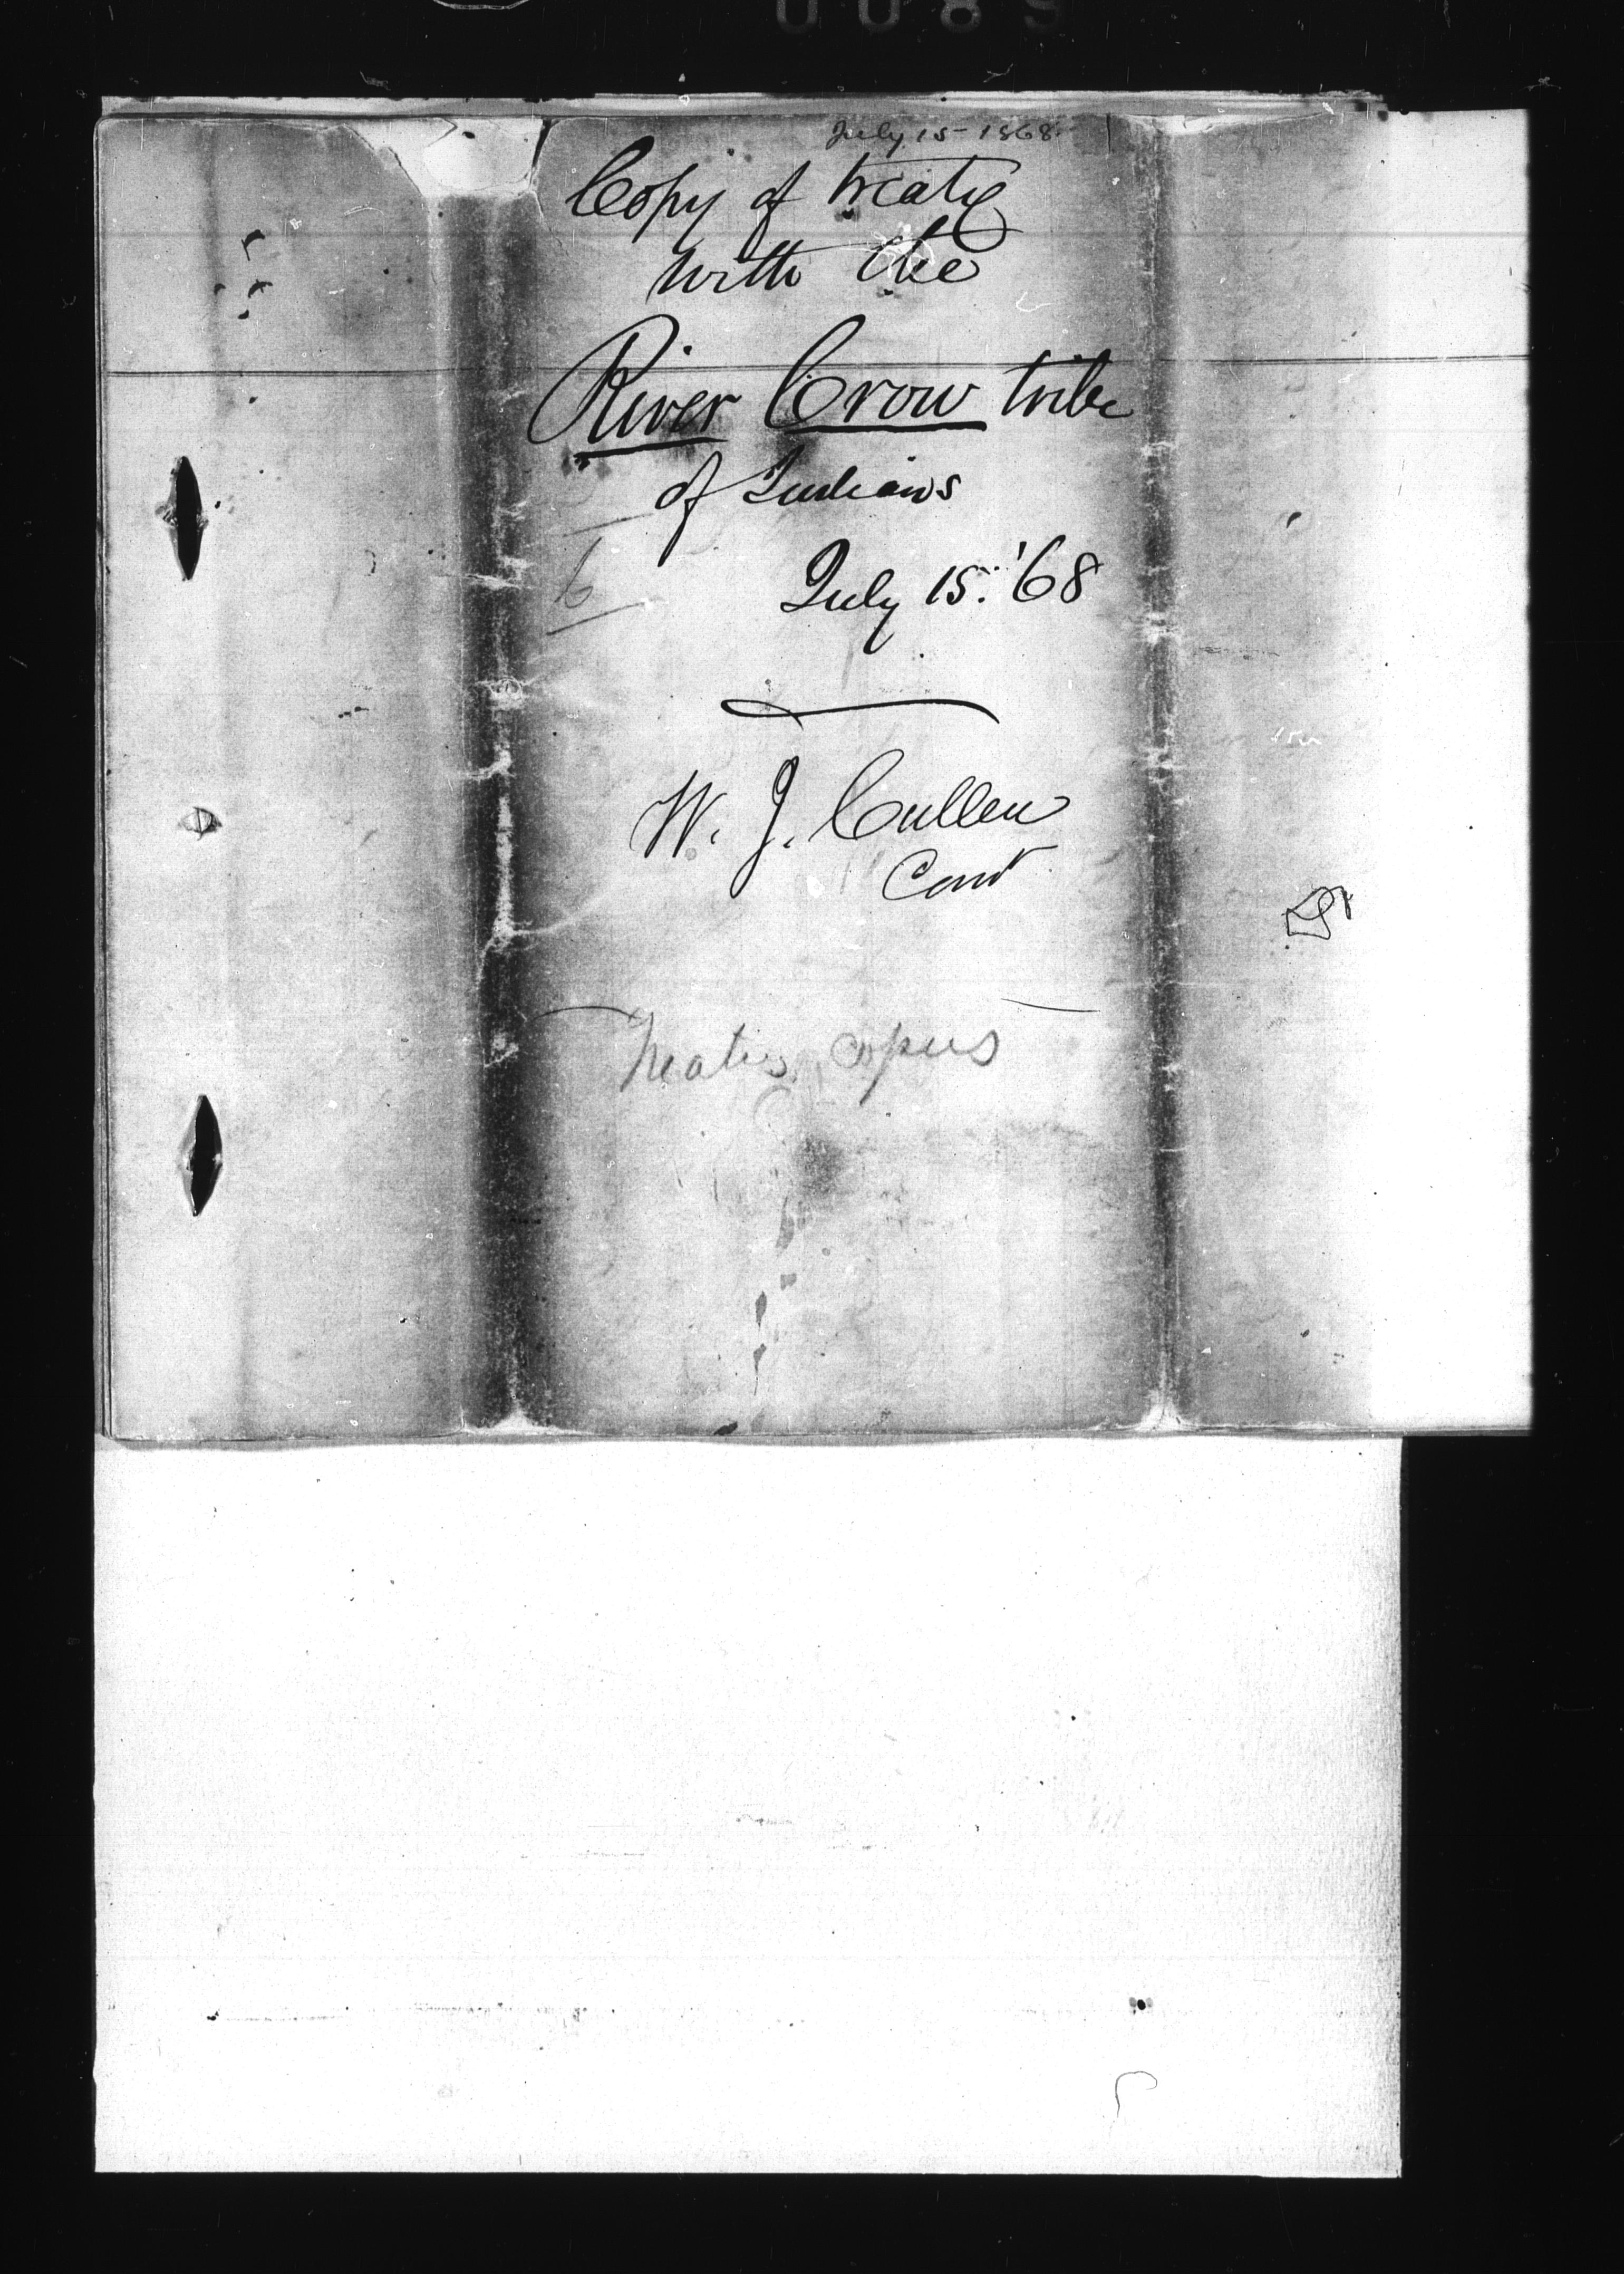 0089
July 15 - 1868.
Copy of treaty
with the
River Crow tribe
of Indians
6
July 15. '68
W. J. Cullen
Com